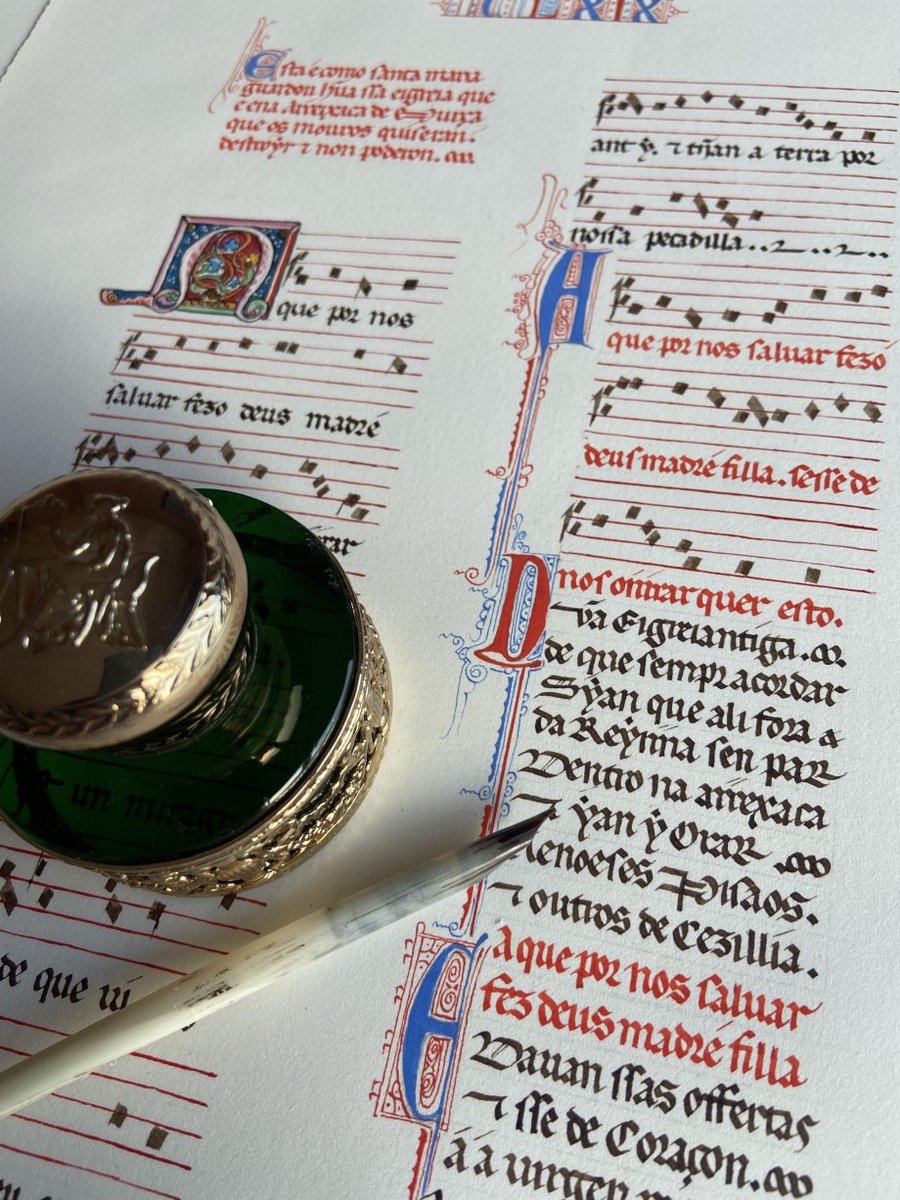 Esta é como santa maria
guardou hũa ssa eigriia que
e ena Arreyxaca de
que os mouros quiseran.
destroyr ⁊ non poderon.
A que por nos
saluar fezo deus madré
un miragre
de que ui
ant ý. ⁊ tijan a terra por
nossa pecadilla..
A
que por nos saluar fezo
deus madré filla. sesse de
nos onrrar quer esto.
Dũa Eigreiantiga.
de que sempr acordar
Sýan que ali fora a
da Reýnna sen par
Dentro na arrexaca
⁊ ýan ý Orar
Genoeses Pisãos.
⁊ outros de Cezillia.
A que por nos saluar
fez deus madré filla
E Dauan ssas offertas
⁊ sse de Coraçon.
á á uirgen